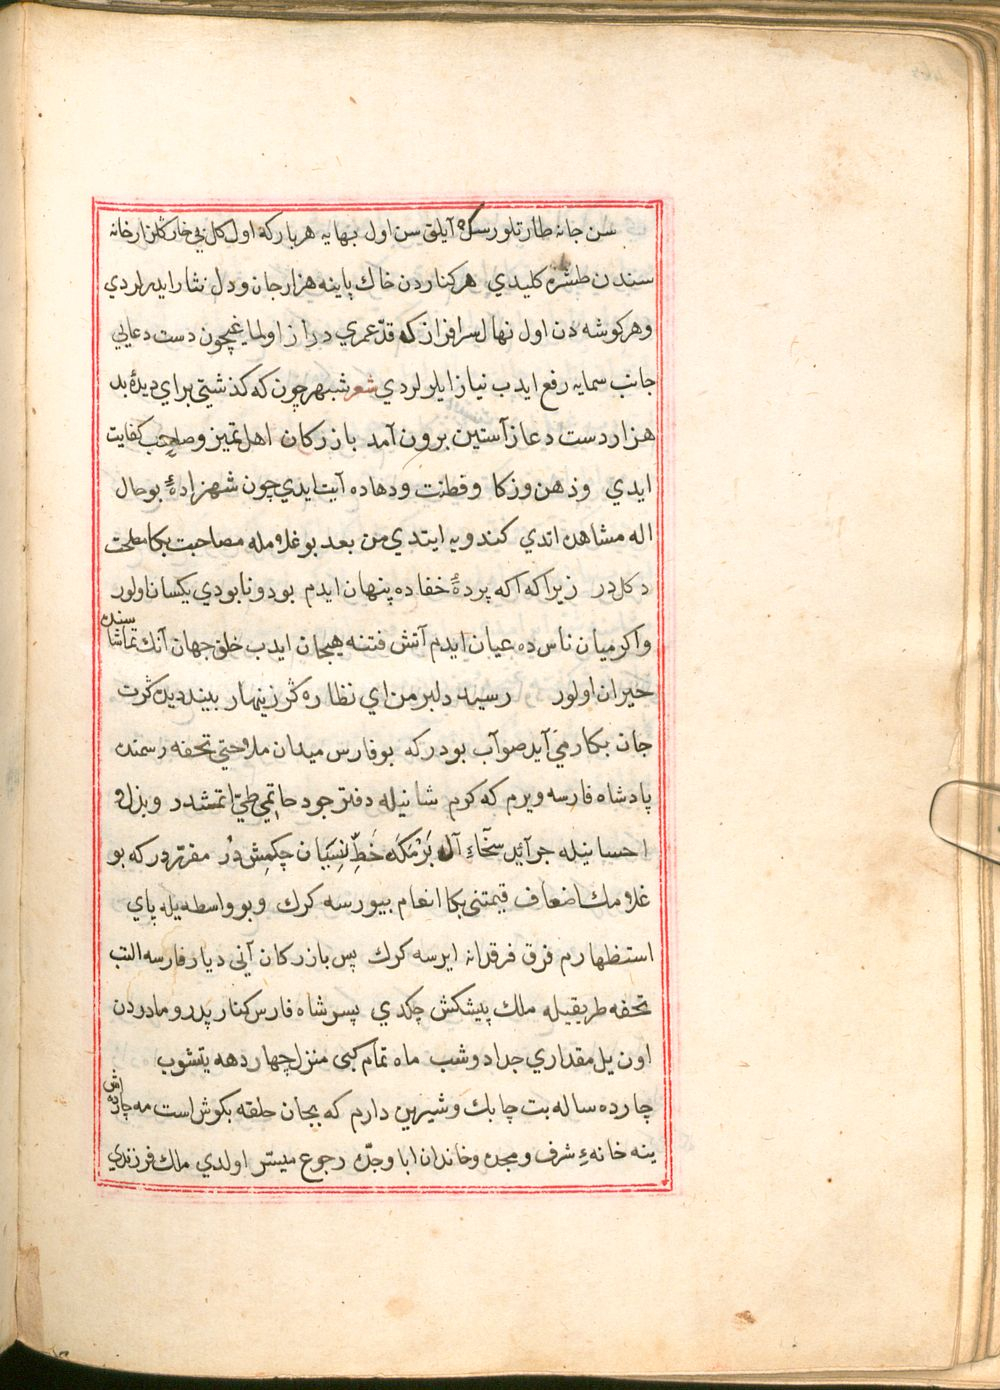 سن جانه طارتلورسك آيلق سن اول بهايه هربار كه اول كل بي خار كلزار خانه
سندن طشره كليدي هركناردن خاك پاينه هزار جان و دل نثار ايدرلردي
وهر كوشه دن اول نهال سرافراز كه قدّ عمري دراز اولماغيچون دست دعايي
جانب سمايه رفع ايدب نياز ايلرلردي شعر شبهر چون كه كذشتي براي ديدهٔ بد
هزار دست دعا از آستين برون آمد بازركان اهل تميز و صاحب كفايت
ايدي وذهن و زكا وفطنت و دهاده آيت ايدي چون شهزادهٔ بو حال
اله مشاهده اتدي كندويه ايتدي من بعد بو غلامله مصاحبت بكا مصلحت
دكلدر زيرا كه اكه پردهٔ خفاده پنهان ايدم بود و نابودي يكسان اولور
واكر ميان ناس ده عيان ايدم آتش فتنه هيجان ايدب خلق جهان آنك تماشاسنده
حيران اولور رسيد دلبر من اي نظاره كر زينهار ببند ديده كرت
جان بكار مي آيد صوآب بودر كه بو فارس ميدان ملاحتي تحفه رسمنده
پادشاه فارسه ويرم كه كرم شانيله دفتر جود حاتمي طيّ اتمشدر و بزل و
احسانيله جرآئد سخآءِ آل بَرْمَكَه خَطِّ نِسيَان چكمِش دُر مقرّردر كه بو
غلامك اضعاف قيمتنى بكا انعام بيورسه كرك وبو واسطه يله پاي
استظهارم فرق فرقدانه ايرسه كرك پس بازركان آني ديار فارسه التب
تحفه طريقيله ملك پيشكش چكدي پسر شاه فارس كنار پدر و مادردن
اون يل مقداري جدا دوشب ماه تمام كبى منزل چهاردهه يتشوب
چارده ساله بت چابك و شيرين دارم كه بجان حلقه بكوش است مه چارده اش
ينه خانهءِ شرف و مجده وخاندان ابا وجدّه رجوع ميسّر اولدي ملك فرزندي